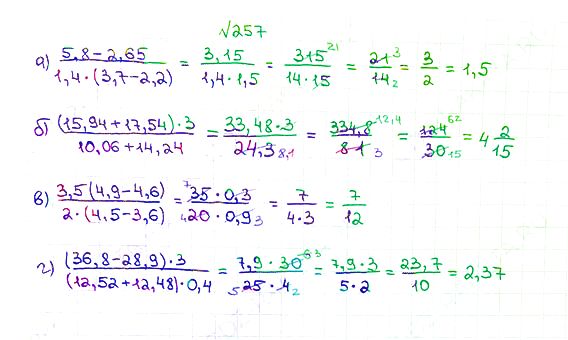 √257
а) 5,8-2,65 / 1,4·(3,7-2,2) = 3,15 / 1,4·1,5 = 315 21 / 14·15 = 21 3 / 14 2 = 3/2 = 1,5
б) (15,94+17,54)·3 / 10,06+14,24 = 33,48·3 / 24,3 8,1 = 334,8 12,4 / 81 3 = 124 62 / 30 15 = 4 2/15
в) 3,5(4,9-4,6) / 2·(4,5-3,6) = 7 35·0,3 / 4 20·0,9 3 = 7 / 4·3 = 7/12
г) (36,8-28,9)·3 / (12,52+12,48)·0,4 = 7,9·30 6 3 / 5 25·4 2 = 7,9·3 / 5·2 = 23,7 / 10 = 2,37